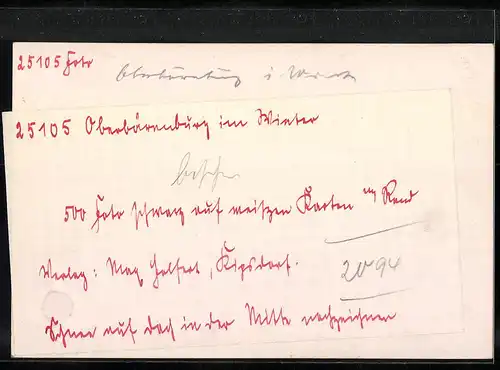 25105 Foto
Oberbärenburg i. Winter
25105 Oberbärenburg im Winter
500 Foto schwarz auf weißen Karten m/ Rand
Verlag: Max Helfert, Kipsdorf.
2094
Schnee auf Dach in der Mitte nachzeichnen